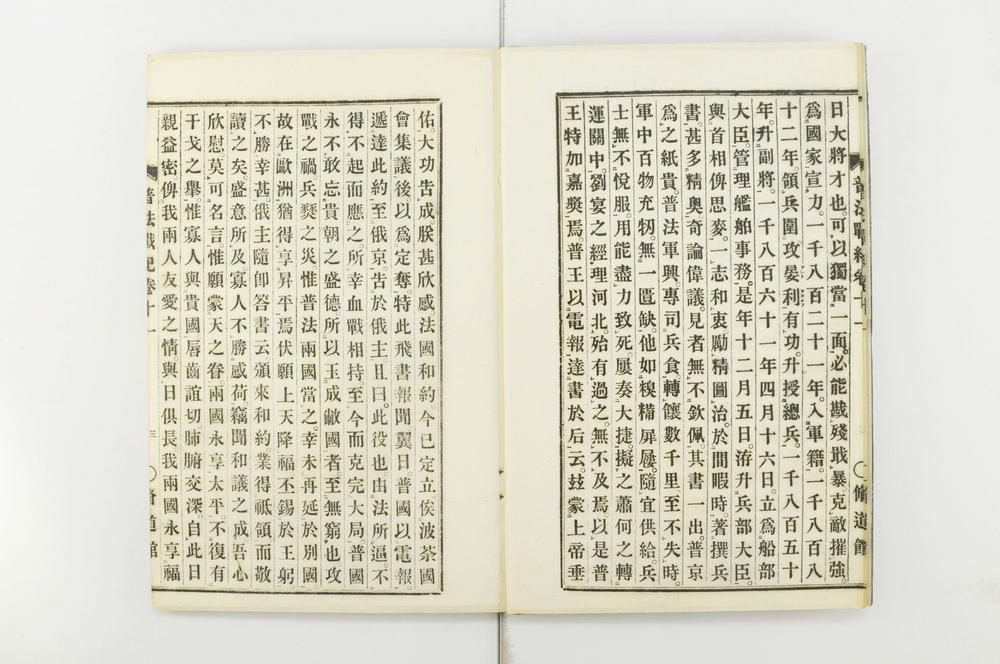 普法戰紀卷十一
〇脩道館
日大將才也。可以獨當一面。必能戡殘戢暴。克敵摧強。
爲國家宣力。一千八百二十一年。入軍籍。一千八百八
十二年領兵圍攻晏利有功。升授總兵。一千八百五十
年。升副將。一千八百六十一年四月十六日。立爲船部
大臣。管理艦舶事務。是年十二月五日。洊升兵部大臣。
與首相俾思麥。一志和衷勵精圖治。於閒暇時。著撰兵
書。甚多精奧奇論偉議。見者無不欽佩。其書一出普京
爲之紙貴。普法軍興。專司兵食。轉饟數千里至不失時。
軍中百物充牣。無一匱缺。他如糗糒屏屨。隨宜供給。兵
士無不悅服。用能盡力致死屢奏大捷。擬之蕭何之轉
運關中。劉宴之經理河北。殆有過之。無不及焉。以是普
王特加嘉獎焉。普王以電報達書於后云。玆蒙上帝垂
佑。大功告成朕甚欣感。法國和約。今已定立。俟波茶國
會集議後。以爲定奪。特此飛書報聞。翼日普國以電報
遞達此約至俄京。告於俄主。且曰此役也由法所逼。不
得不起而應之。所幸血戰相持至今而克完大局。普國
永不敢忘貴朝之盛德。所以玉成敝國者至無窮也。攻
戰之禍兵燹之災惟普法兩國當之。幸未再延於別國
故在歐洲猶得享昇平焉。伏願上天降福丕錫於王躬
不勝幸甚。俄主隨卽答書云。頒來和約。業得祗領而敬
讀之矣。盛意所及寡人不勝感荷。竊聞和議之成吾心
欣慰莫可名言。惟願蒙天之眷兩國永享太平。不復有
干戈之舉。惟寡人與貴國脣齒誼切。肺腑交深。自此日
親益密俾我兩人友愛之情。與日俱長我兩國永享福
普法戰紀卷十一
三
〇脩道館